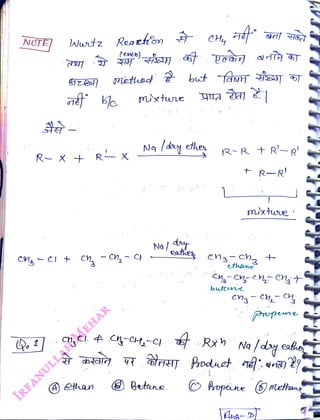 NOTE Wurtz Reaction से CH4 नहीं बना सकते
तथा ये सम (even) संख्या की एल्केन बनाने का
अच्छा method है but विषम संख्या का
नहीं b/c mixture प्राप्त होता है।
जैसे -
R- X + R'- X Na / dry ether R-R + R'-R'
+ R-R'
mixture.
CH3 - Cl + CH3 - CH2 - Cl Na / dry eather CH3-CH3 +
ethane
CH3-CH2-CH2-CH3 +
butane
CH3 - CH2 - CH3
propane
Qn. 1 CH3Cl + CH3-CH2-Cl की Rxn Na / dry eather
से करवाने पर कौनसा Product नहीं बनता है?
A Ethan B Butane C Propane D Methane
Ans -
IRFANULLAH MEHAR